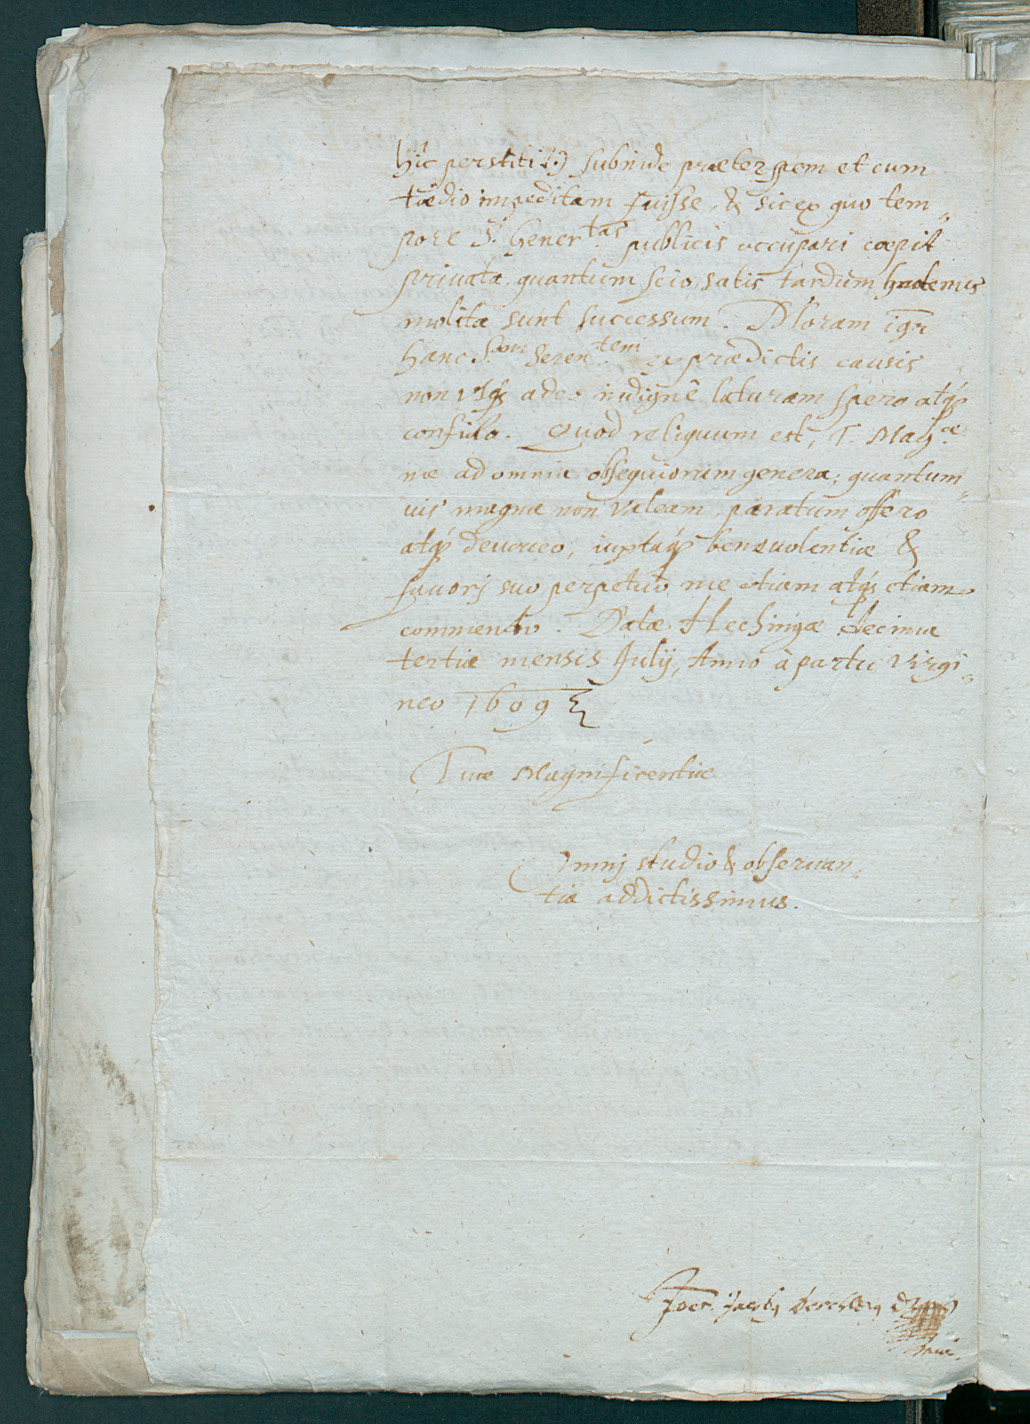 hic perstiti :) subinde præter spem et cum
tædio impeditam fuisse, & sic ex quo tem„
pore S.ª Gener:tas publicis occupari cœpit
privata, quantum scio, satis tardum hactenus
molita sunt successum. Moram igr̄
hanc S.am Seren:tem ex prædictis causis
non vsq́ adeo indignè laturam spero atq́
confido. Quod reliquum est, T. Mag:cæ
me ad omnia obsequiorum genera, quantum„
uis magna non valeam, paratum offero
atq́ deuoueo, iuxtaq́ beneuolentiæ &
fauorj suo perpetuò me etiam atq́ etiam
commendo. Datæ Hechingæ decima
tertia mensis Julij, Anno à partu Virgi„
neo 1609
Tuæ Magnificentiæ
Omnj studio & obseruan„
tia addictissimus.
Joan. Jacob